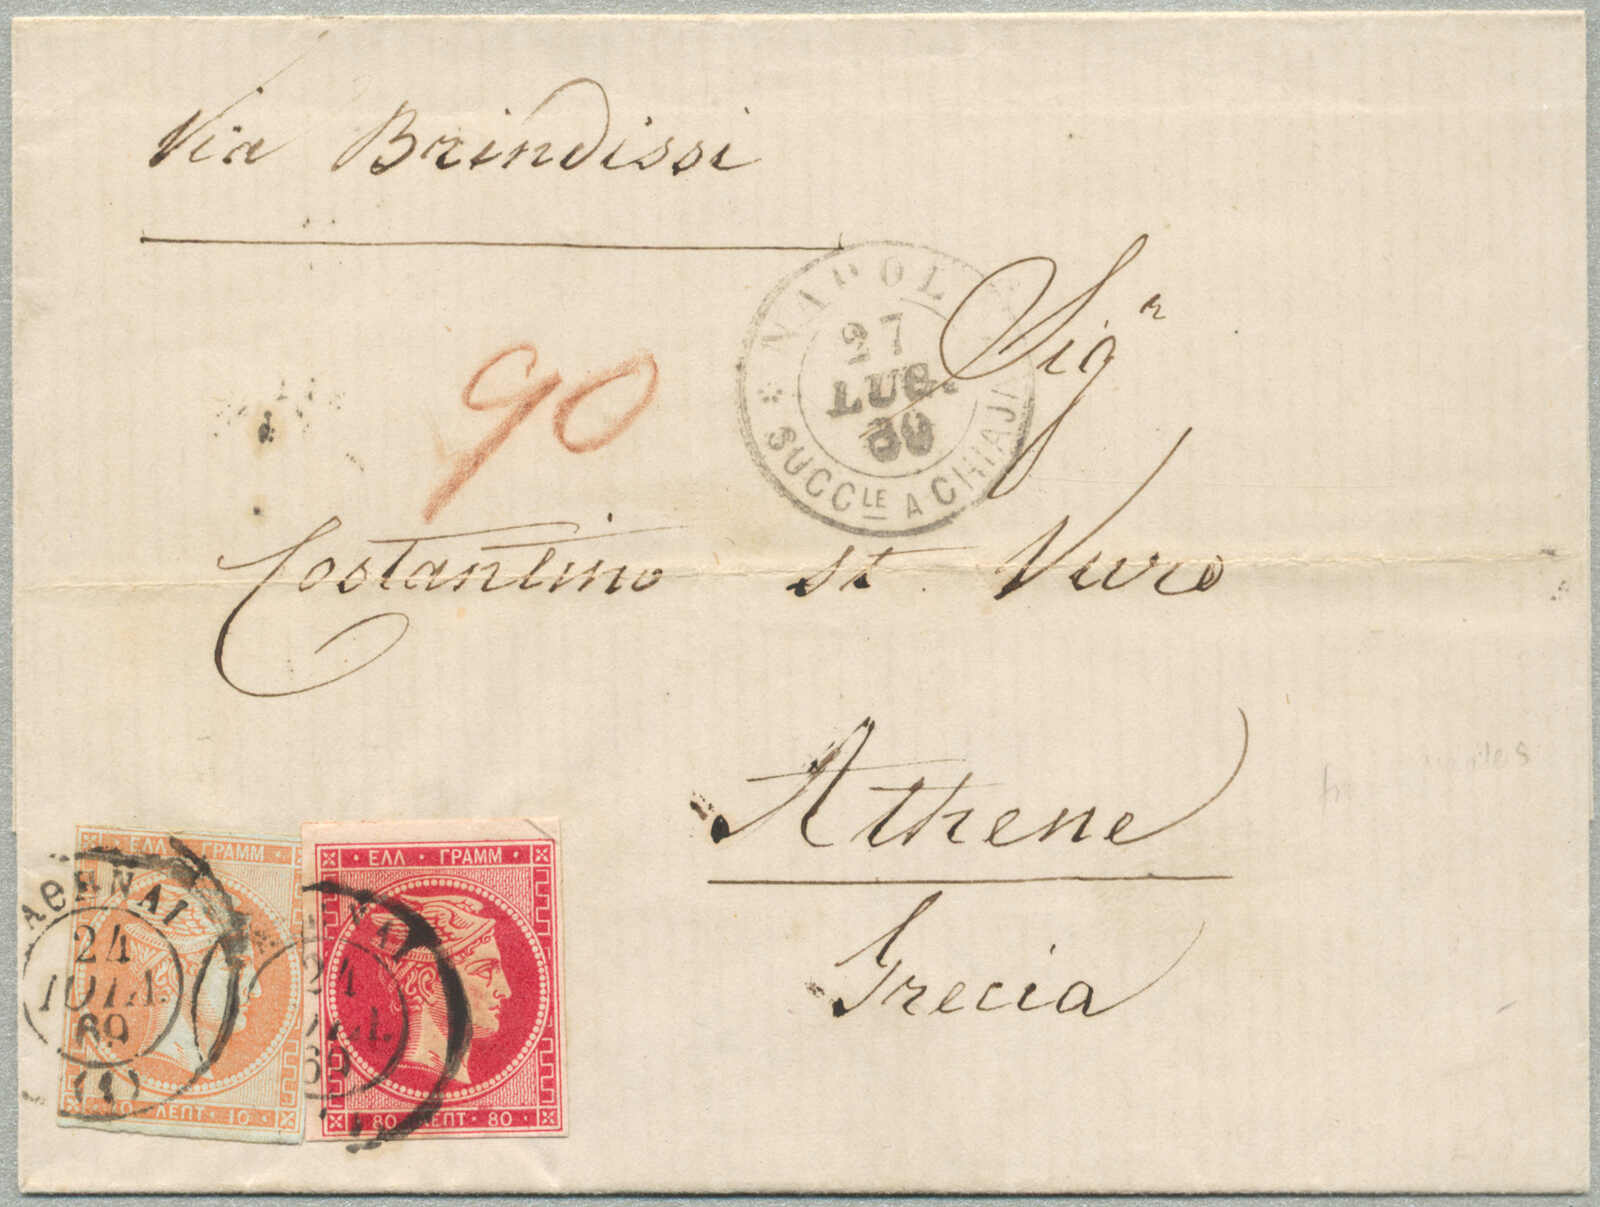 Via Brindissi
NAPOLI
27
LUG.
69
* SUCC.LE A CHIAJA
90
Sig.r
Costantino st. Vuro
Athene
Grecia
ΕΛΛ • ΓΡΑΜΜ
10 • ΛΕΠΤ • 10
ΑΘΗΝΑΙ
24
ΙΟΥΛ.
69
(1)
ΕΛΛ • ΓΡΑΜΜ
80 • ΛΕΠΤ • 80
ΑΘΗΝΑΙ
24
ΙΟΥΛ.
69